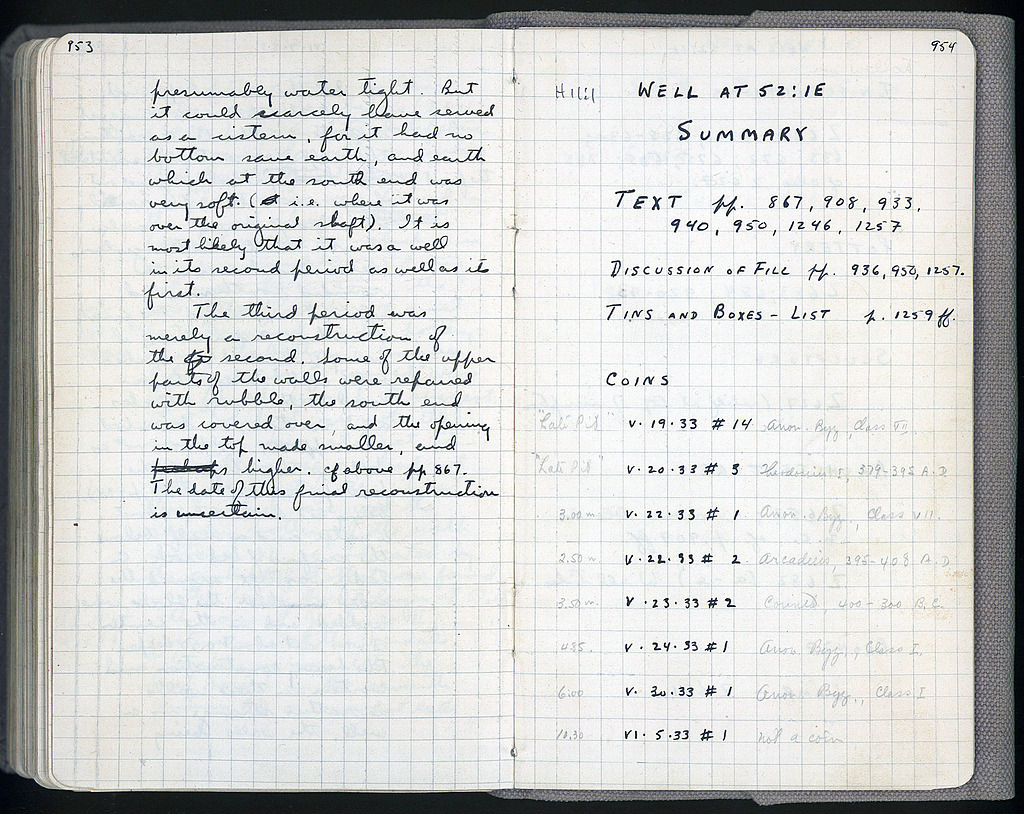 953
presumably water tight. But
it could scarcely have served
as a cistern, for it had no
bottom save earth, and earth
which at the south end was
very soft. (i.e. where it was
over the original shaft). It is
most likely that it was a well
in its second period as well as its
first.
The third period was
merely a reconstruction of
the second. Some of the upper
parts of the walls were repaired
with rubble, the south end
was covered over, and the opening
in the top made smaller, and
perhaps higher. cf above pp 867.
The date of this final reconstruction
is uncertain.
954
WELL AT 52:1E
SUMMARY
TEXT pp. 867, 908, 933,
940, 950, 1246, 1257
DISCUSSION OF FILL pp. 936, 950, 1257.
TINS AND BOXES - LIST p. 1259 ff.
COINS
"Late Pit" V. 19. 33 # 14 Anon. Byz., Class VII
"Late Pit" V. 20. 33 # 3 Theodosius I, 379-395 A.D
3.00 m. V. 22. 33 # 1 Anon. Byz., Class VII.
2.50 m. V. 22. 33 # 2 Arcadius, 395-408 A.D
3.50 m. V. 23. 33 # 2 Corinth, 400-300 B.C.
4.85 V. 24. 33 # 1 Anon Byz., Class I.
6.00 V. 30. 33 # 1 Anon Byz., Class I
10.30 VI. 5. 33 # 1 not a coin